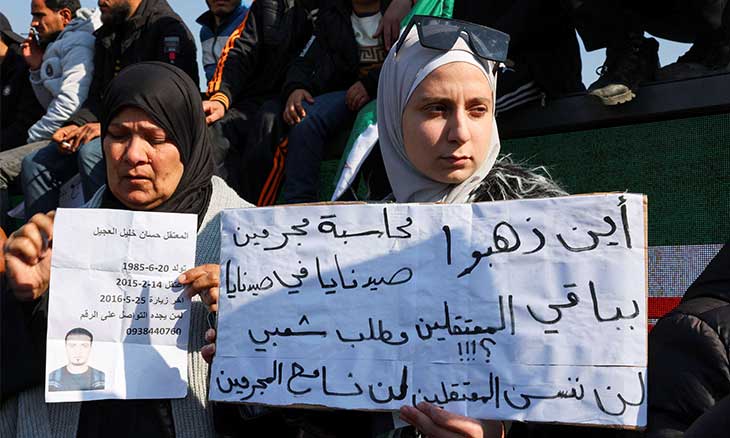 المعتقل حسان خليل العجيل
تولد 20-6-1985
اعتقل 14-2-2015
اخر زيارة 25-5-2016
لمن يجده التواصل على الرقم
0938440760
أين ذهبوا
بباقي المعتقلين
؟!!!
محاسبة مجرمين
صيدنايا في صيدنايا
وطلب شعبي
لن ننسى المعتقلين لن نسامح المجرمين